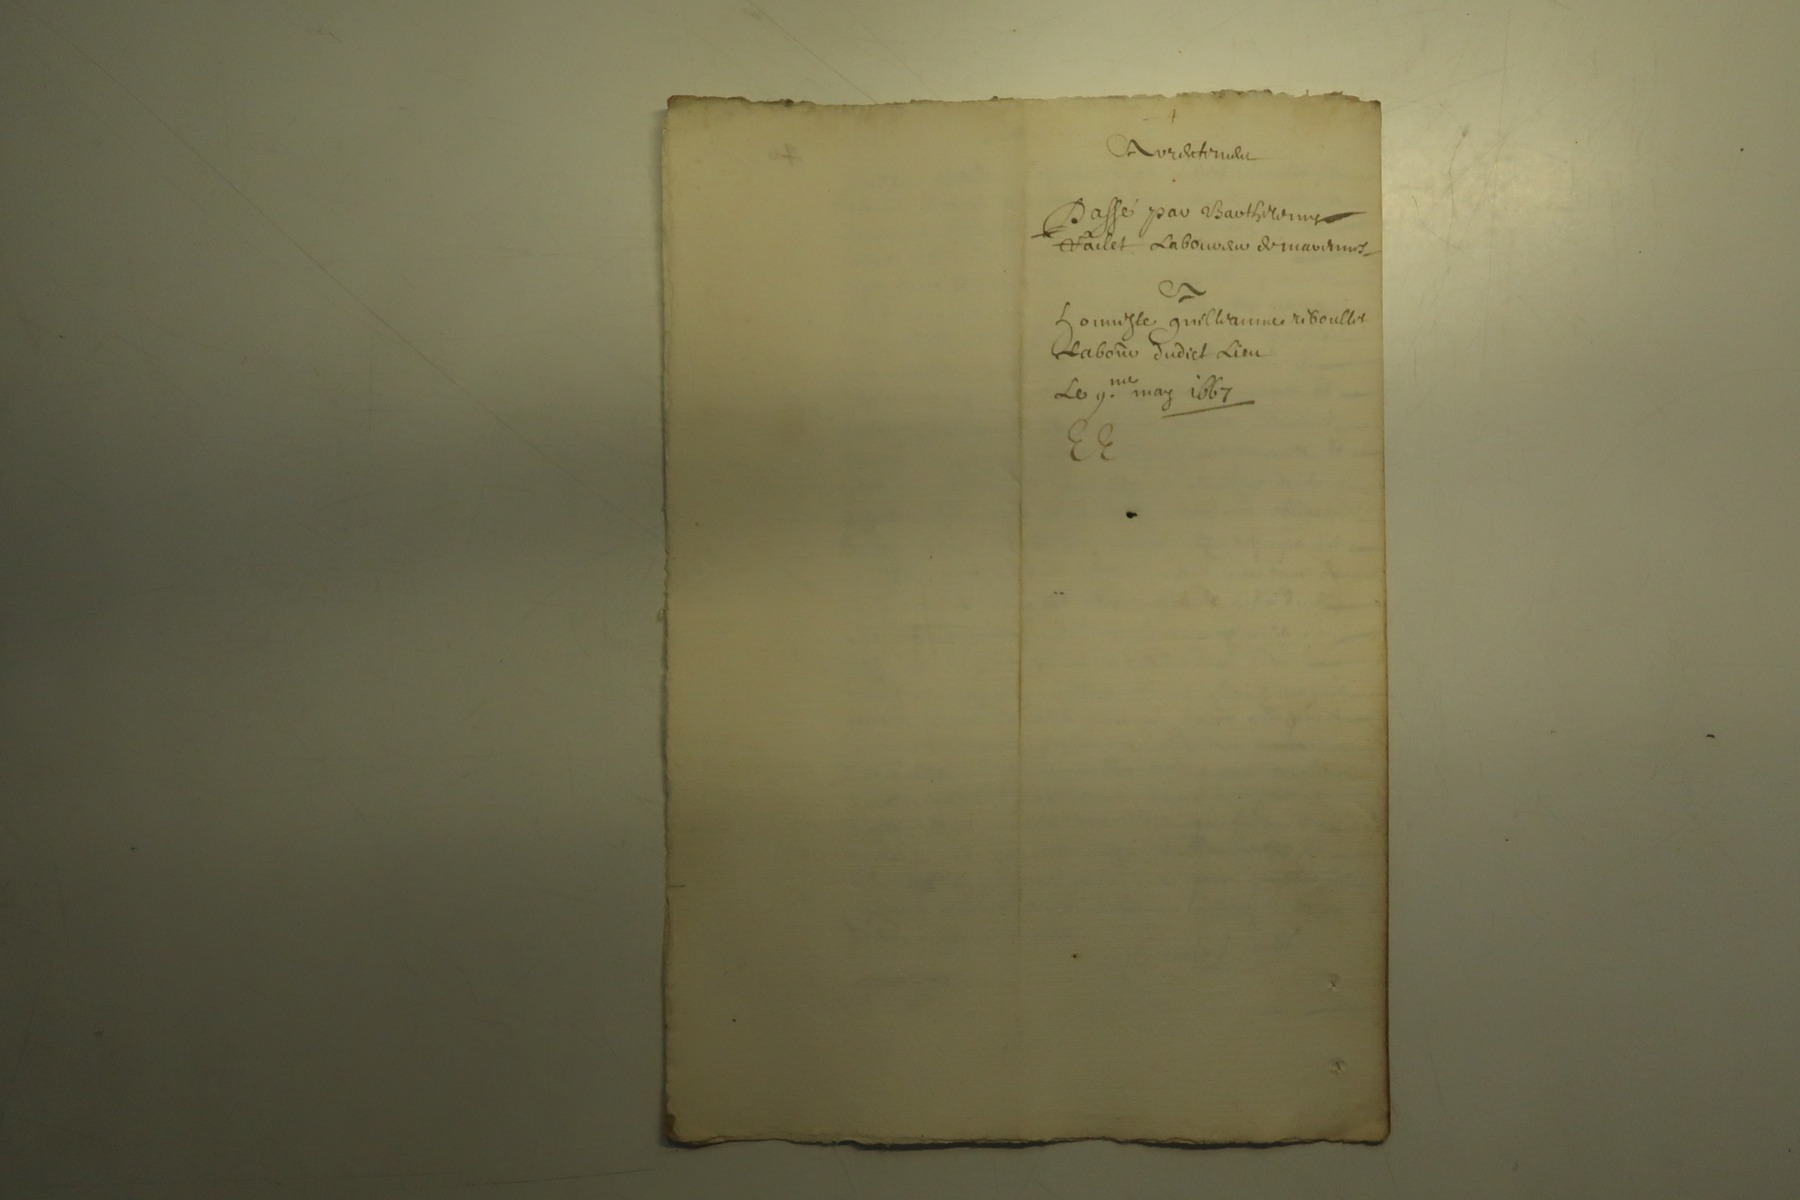 Passé par Barthelemy
Laboureur de
A
honneste guilleaume riboullet
Labour dudict Lieu
Le 9.me may 1667
EE